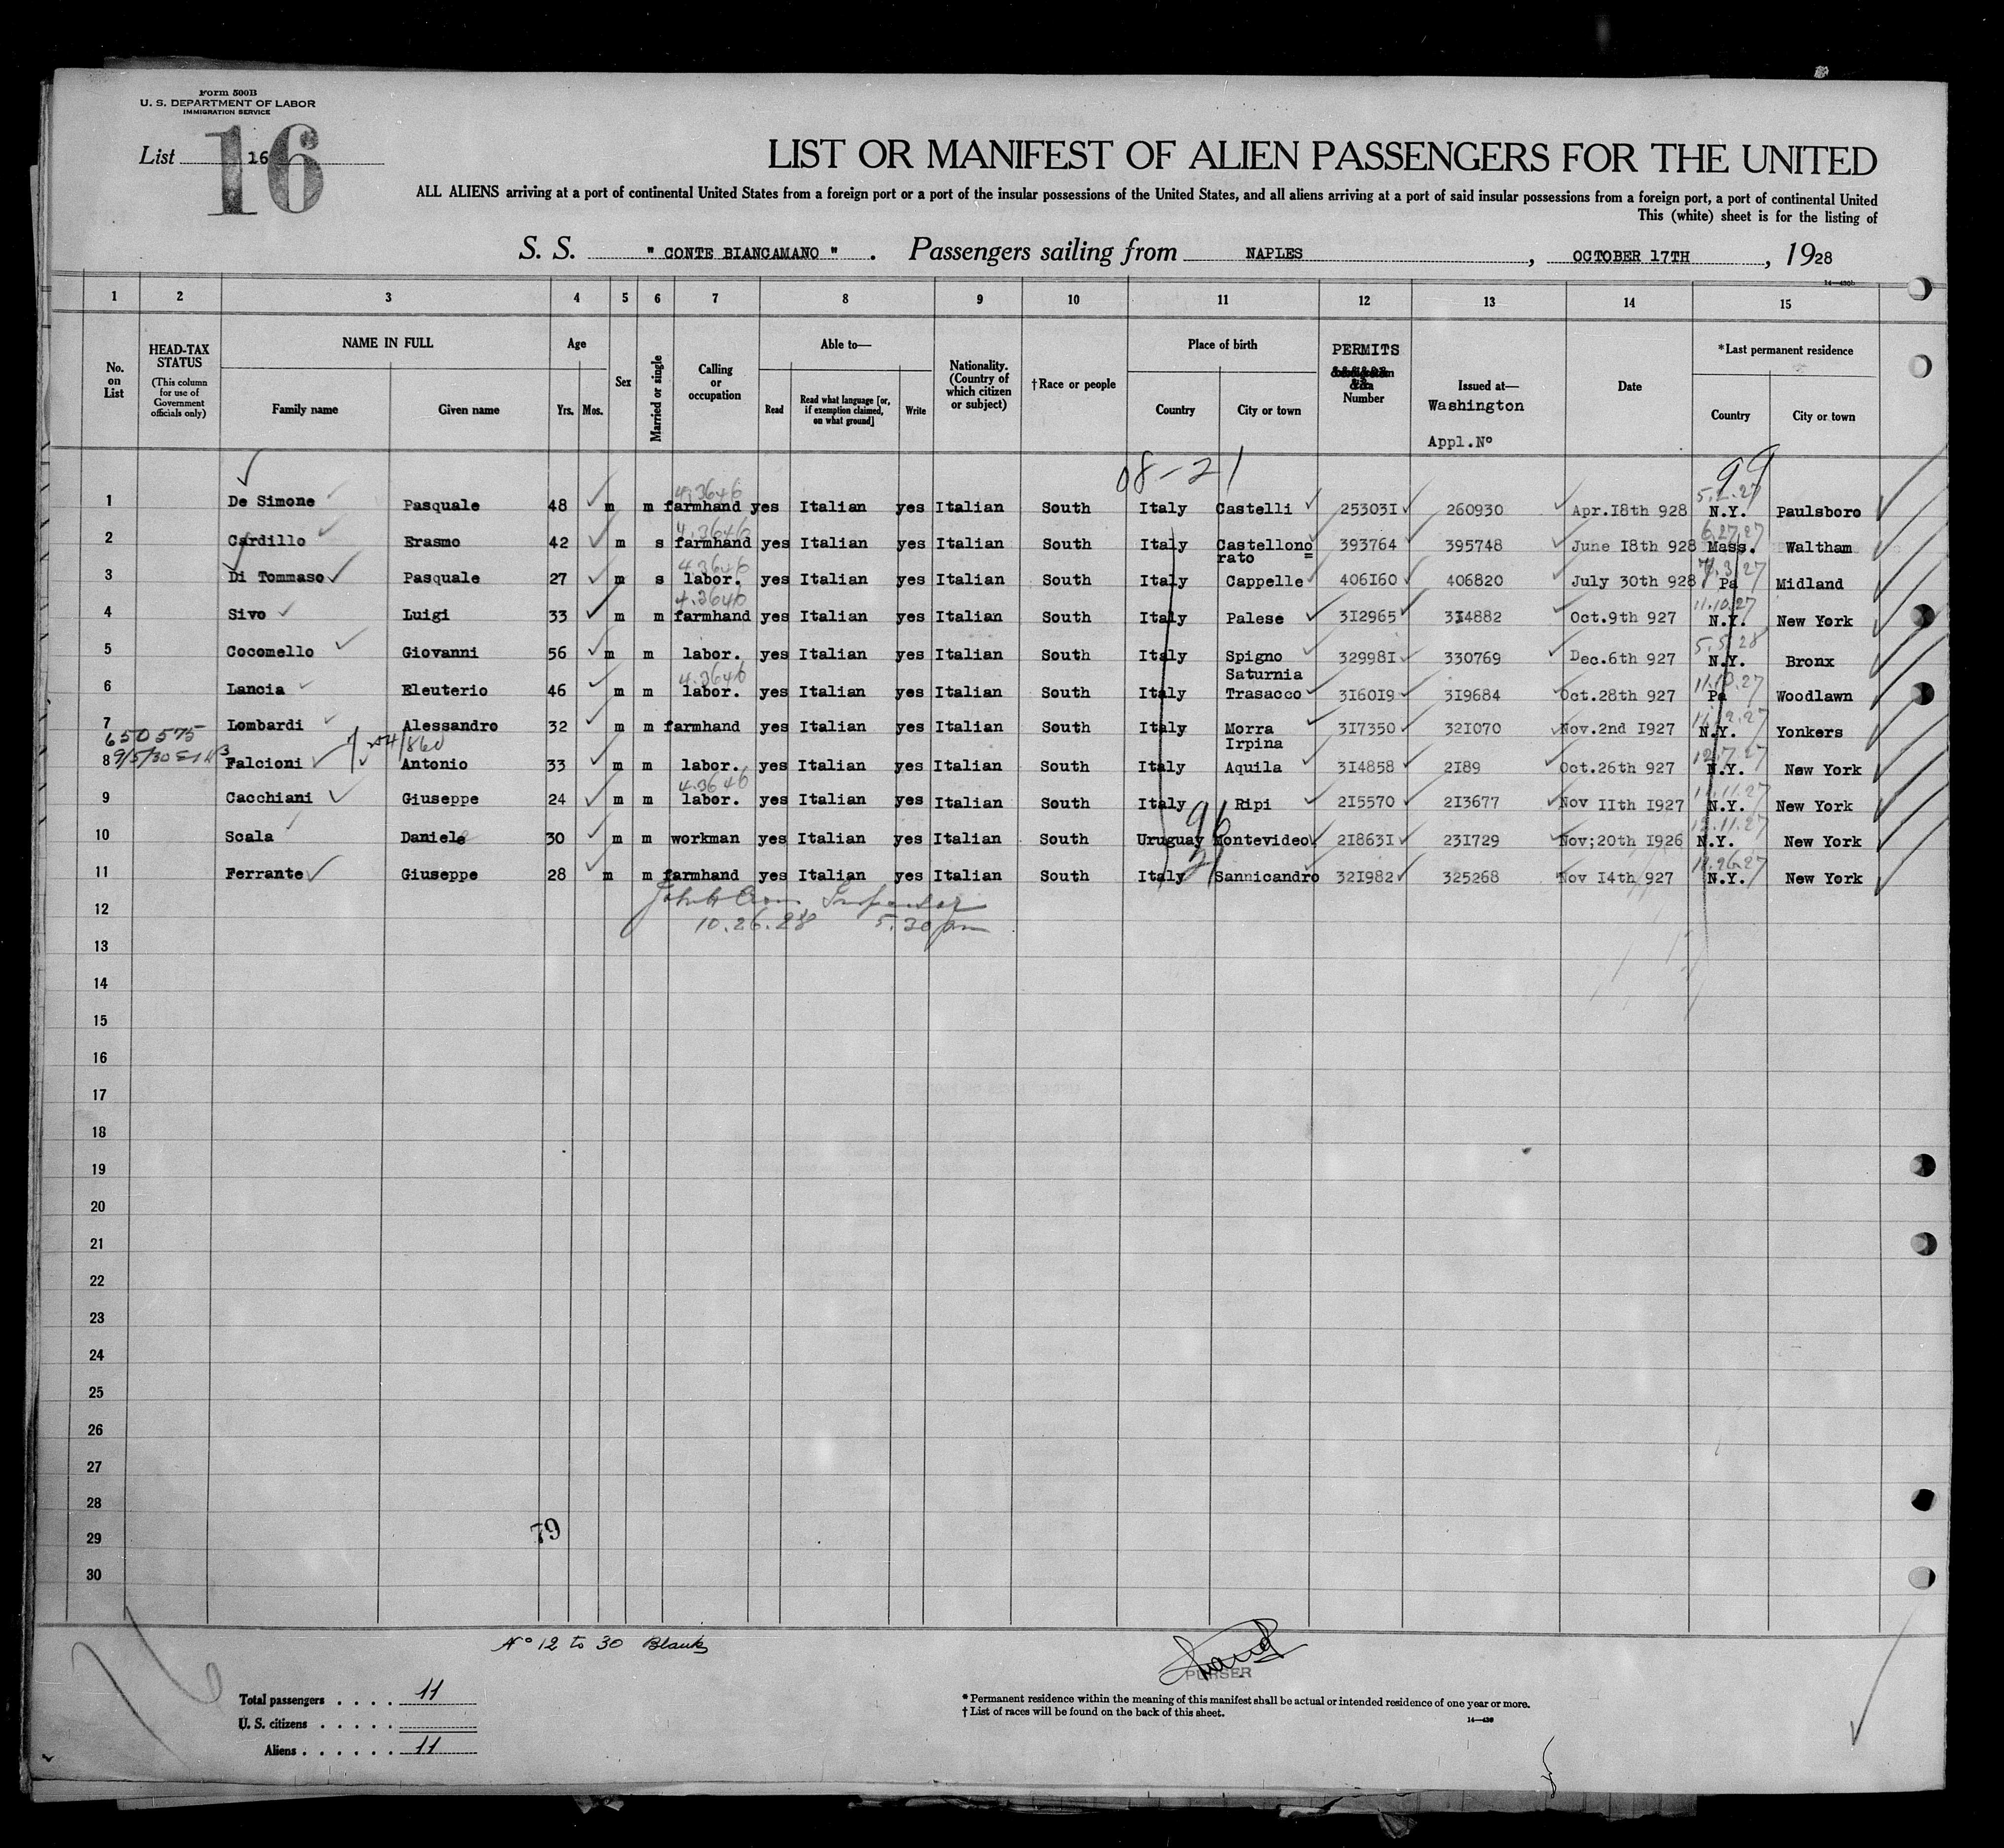 Form 500B
U. S. DEPARTMENT OF LABOR
IMMIGRATION SERVICE
List 16
16
LIST OR MANIFEST OF ALIEN PASSENGERS FOR THE UNITED
ALL ALIENS arriving at a port of continental United States from a foreign port or a port of the insular possessions of the United States, and all aliens arriving at a port of said insular possessions from a foreign port, a port of continental United
This (white) sheet is for the listing of
S. S. " CONTE BIANCAMANO " . Passengers sailing from NAPLES , OCTOBER 17TH , 1928
14—430b
1 2 3 4 5 6 7 8 9 10 11 12 13 14 15
No. on List
HEAD-TAX STATUS (This column for use of Government officials only)
NAME IN FULL
Family name Given name
Age
Yrs. Mos.
Sex
Married or single
Calling or occupation
Able to—
Read
Read what language [or, if exemption claimed, on what ground]
Write
Nationality. (Country of which citizen or subject)
†Race or people
Place of birth
Country City or town
PERMITS
Number
Issued at—
Washington
Appl.Nº
Date
*Last permanent residence
Country City or town
08-21 99
4.3646 5.2.27
1 De Simone Pasquale 48 m m farmhand yes Italian yes Italian South Italy Castelli 25303I 260930 Apr.I8th 928 N.Y. Paulsboro
4.3646 6.27.27
2 Cardillo Erasmo 42 m s farmhand yes Italian yes Italian South Italy Castellono=rato 393764 395748 June I8th 928 Mass. Waltham
4.3646
3 Di Tommaso Pasquale 27 m s labor. yes Italian yes Italian South Italy Cappelle 406I60 406820 July 30th 928 Pa Midland
4.3646 11.10.27
4 Sivo Luigi 33 m m farmhand yes Italian yes Italian South Italy Palese 3I2965 3I4882 Oct.9th 927 N.Y. New York
5.5.28
5 Cocomello Giovanni 56 m m labor. yes Italian yes Italian South Italy Spigno Saturnia 32998I 330769 Dec.6th 927 N.Y. Bronx
4.3646 11.10.27
6 Lancia Eleuterio 46 m m labor. yes Italian yes Italian South Italy Trasacco 3I60I9 3I9684 Oct.28th 927 Pa Woodlawn
11.12.27
7 Lombardi Alessandro 32 m m farmhand yes Italian yes Italian South Italy Morra Irpina 3I7350 32I070 Nov.2nd I927 N.Y. Yonkers
650575
9/5/30
12.7.27
8 Falcioni Antonio 33 m m labor. yes Italian yes Italian South Italy Aquila 3I4858 2I89 Oct.26th 927 N.Y. New York
4.3646 11.11.27
9 Cacchiani Giuseppe 24 m m labor. yes Italian yes Italian South Italy Ripi 2I5570 2I3677 Nov IIth I927 N.Y. New York
96 12.11.27
10 Scala Daniele 30 m m workman yes Italian yes Italian South Uruguay Montevideo 2I863I 23I729 Nov;20th I926 N.Y. New York
21 11.26.27
11 Ferrante Giuseppe 28 m m farmhand yes Italian yes Italian South Italy Sannicandro 32I982 325268 Nov I4th 927 N.Y. New York
12 Inspector
10.26.28 5.30 pm
13
14
15
16
17
18
19
20
21
22
23
24
25
26
27
28
29
79
30
Nº 12 to 30 Blank
16
PURSER
Total passengers . . . . 11
U. S. citizens . . . . .
Aliens . . . . . . 11
* Permanent residence within the meaning of this manifest shall be actual or intended residence of one year or more.
† List of races will be found on the back of this sheet.
14—430